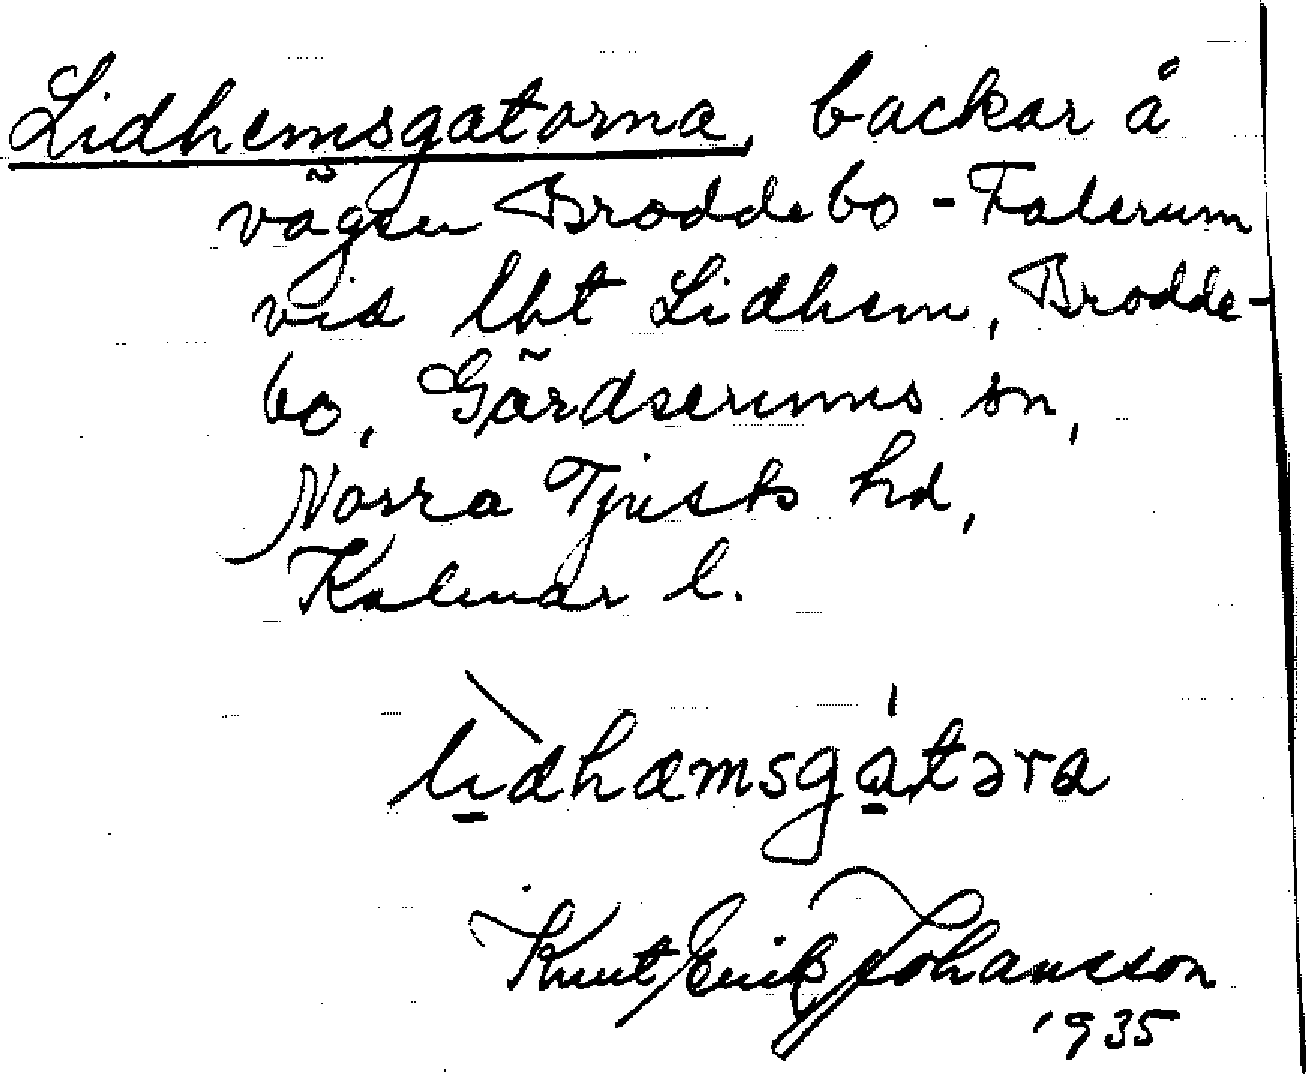 Lidhemsgatorna, backar å
vägen Broddebo - Falerum
vid lht Lidhem, Brodde-
bo, Gärdserums sn,
Norra Tjusts hd,
Kalmar l.
lìdhæmsgátəra
Knut Erik Johansson
1935